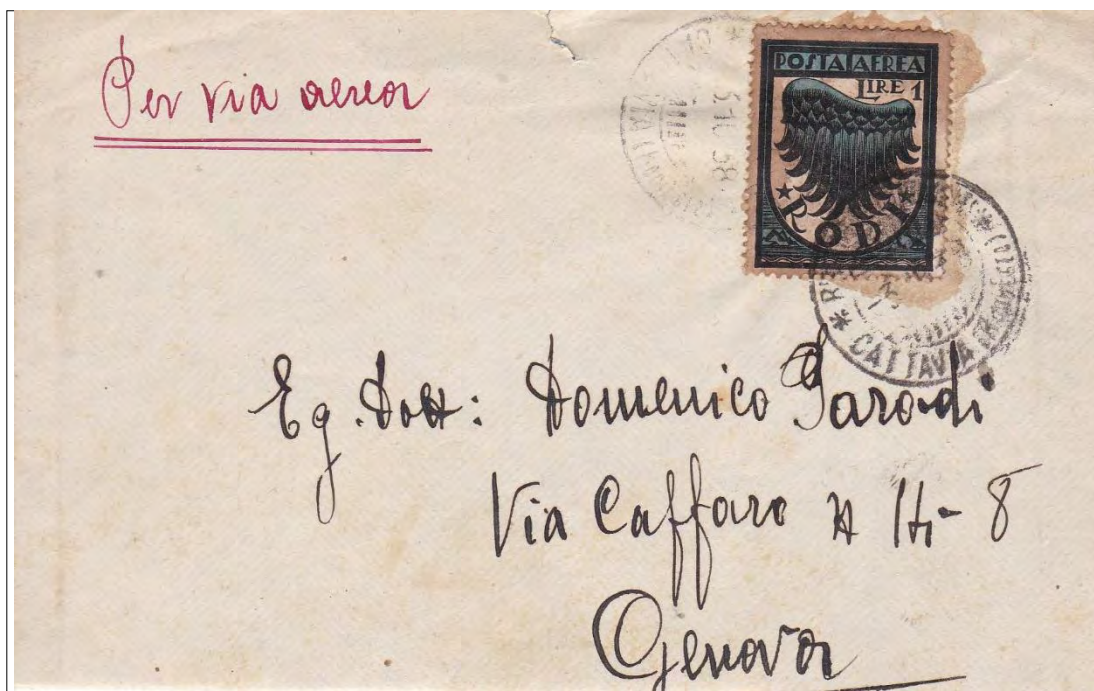 Per via aerea
POSTA AEREA
LIRE 1
RODI
CATTAVIA
Eg. Dott: Domenico Parodi
Via Caffaro
Genova